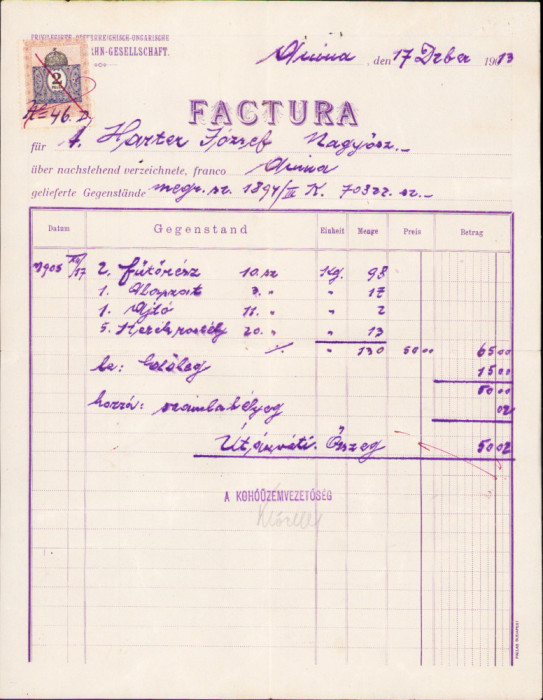 PRIVILEGIRTE OESTERREICHISCH-UNGARISCHE
BAHN-GESELLSCHAFT.
2
46.
Anina, den 17 Dzber 1903
FACTURA
für A. Harter József Nagyősz.
über nachstehend verzeichnete, franco Anina
gelieferte Gegenstände megr. sz. 1894/III K. 70322. sz.
Datum Gegenstand Einheit Menge Preis Betrag
1903 17 2. fűtőrész 10. sz Kg. 98
1. Alapzat 3. " " 17
1. Ajtó 11. " " 2
5. 20. " " 13
" 130 50 00 65 00
le: Előleg 15 00
50 00
hozzá: számlabélyeg 02
Utánvéti Összeg 50 02
A KOHÓÜZEMVEZETŐSÉG